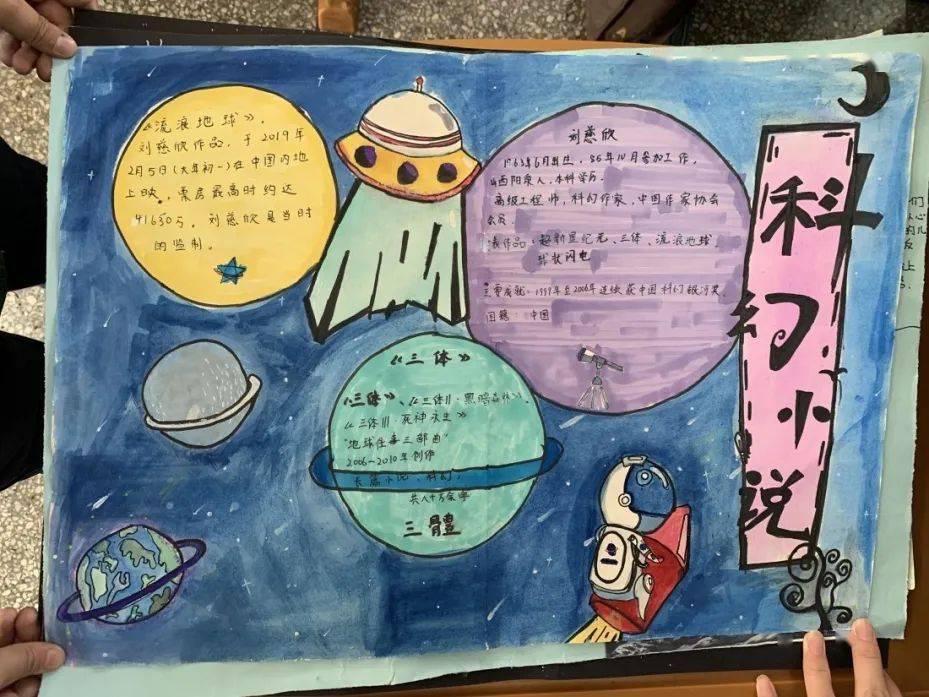 科幻小说
《流浪地球》，
刘慈欣作品，于2019年
2月5日(大年初一)在中国内地
上映，票房最高时约达
41650万，刘慈欣是当时
的监制。
刘慈欣
1963年6月出生，85年10月参加工作，
山西阳泉人，本科学历。
高级工程师，科幻作家，中国作家协会
会员。
表作品：超新星纪元、三体、流浪地球、
球状闪电
主要成就：1999年至2006年连续获中国科幻银河奖
国籍：中国
《三体》
《三体》、《三体II·黑暗森林》、
《三体III·死神永生》
"地球往事三部曲"
2006~2010年创作
长篇小说、科幻，
共八十万余字
三體